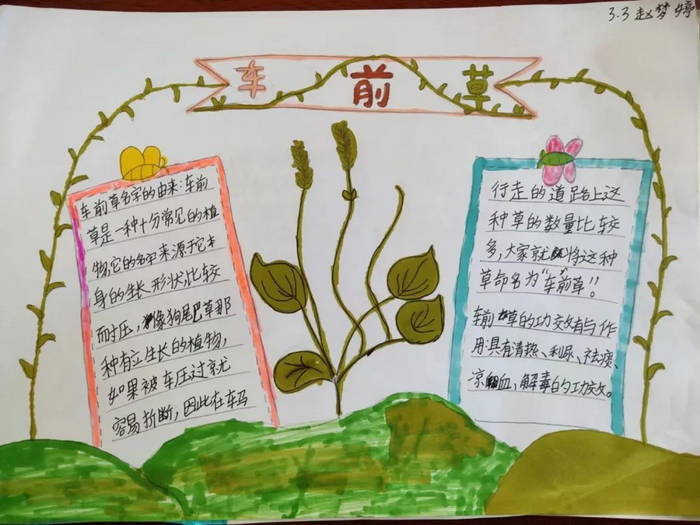 3.3赵梦婷
车前草
车前草名字的由来:车前
草是一种十分常见的植
物,它的名字来源于它本
身的生长形状,比较
而才压,像狗尾巴草那
种直立生长的植物,
如果被车压过就
容易折断,因此在车马
行走的道路上这
种草的数量比较
多,大家就将这种
草命名为“车前草!!
车前草的功效有与作
用:具有清热、利尿、祛痰、
凉血,解毒的功效。